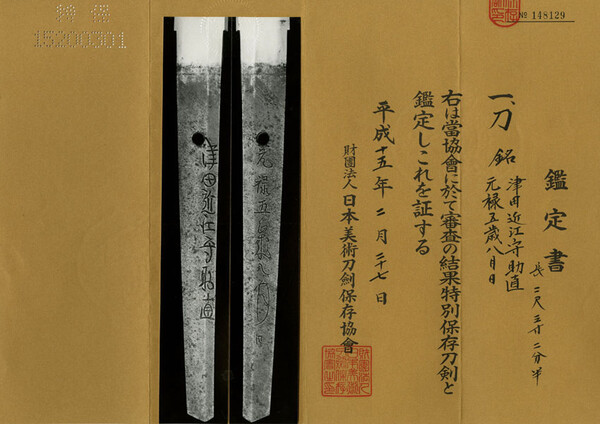 № 148129
鑑定書
一、刀 銘 津田近江守助直
元禄五歳八月日
長二尺三寸二分半
右は當協會に於て審査の結果特別保存刀剣と
鑑定しこれを証する
平成十五年二月二十七日
財團法人 日本美術刀劍保存協會
元禄五歳八月日
津田近江守助直
15200301